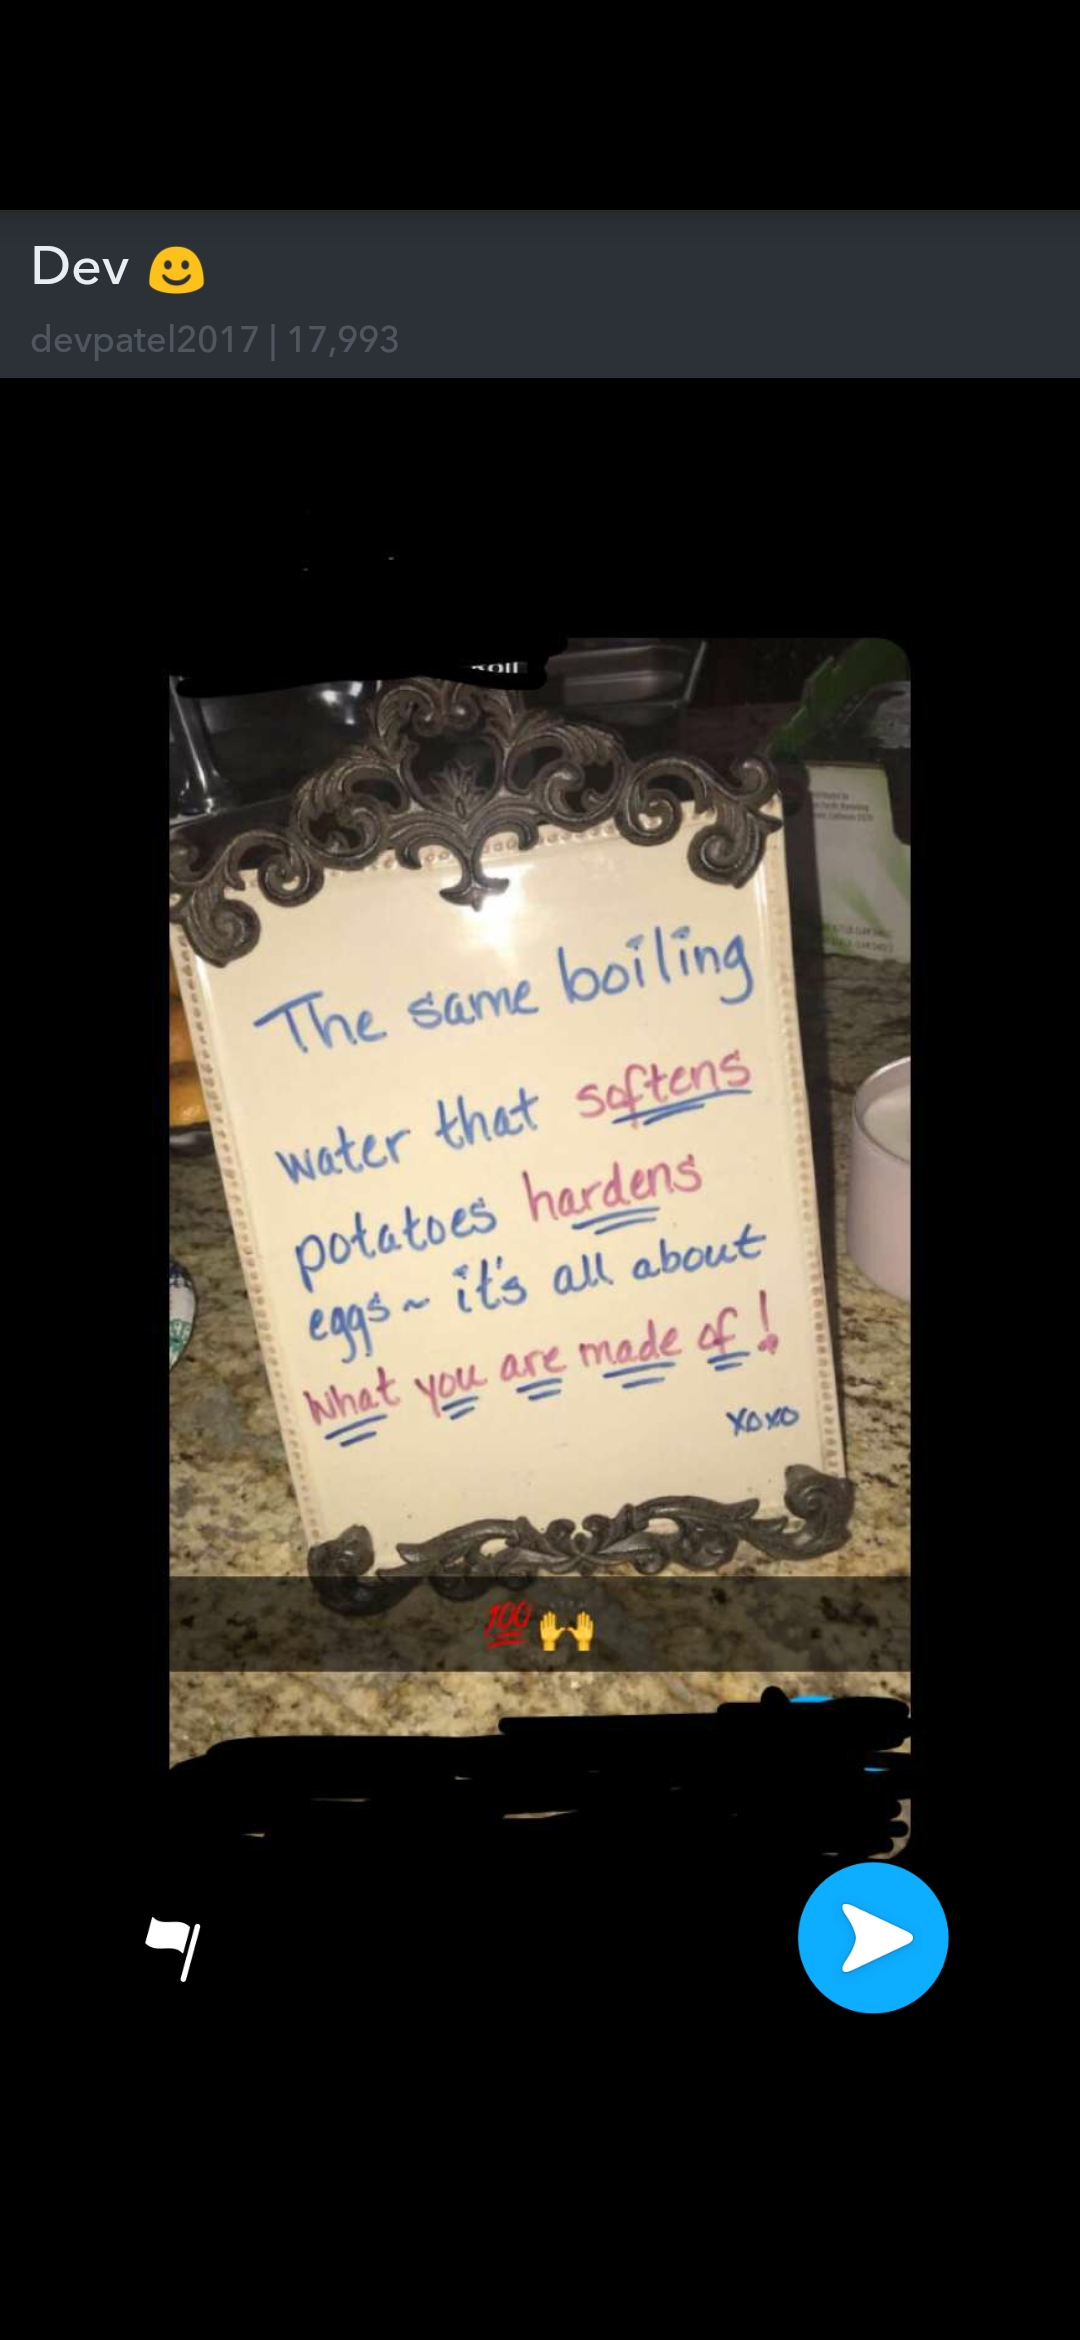 Dev
devpatel2017 | 17,993
The same boiling
water that softens
potatoes hardens
eggs ~ it's all about
What you are made of!
xoxo
💯🙌